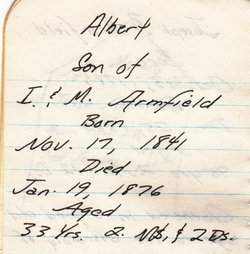 Albert
Son of
I. & M. Armfield
Born
Nov. 17, 1841
Died
Jan. 19, 1876
Aged
33 Yrs. 2. Ms, & 2 Ds.